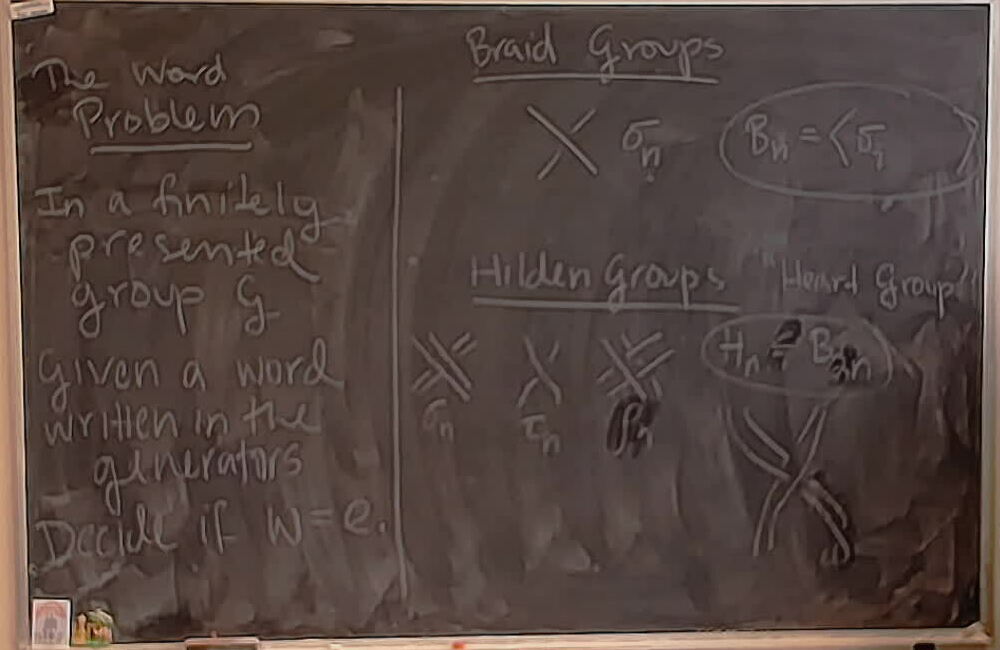 The Word
Problem
In a finitely
presented
group G
Given a word
written in the
generators
Decide if W = e.
Braid Groups
σn
Bn = ⟨σi ⟩
Hilden Groups
Group
Hn
B
σn
τn